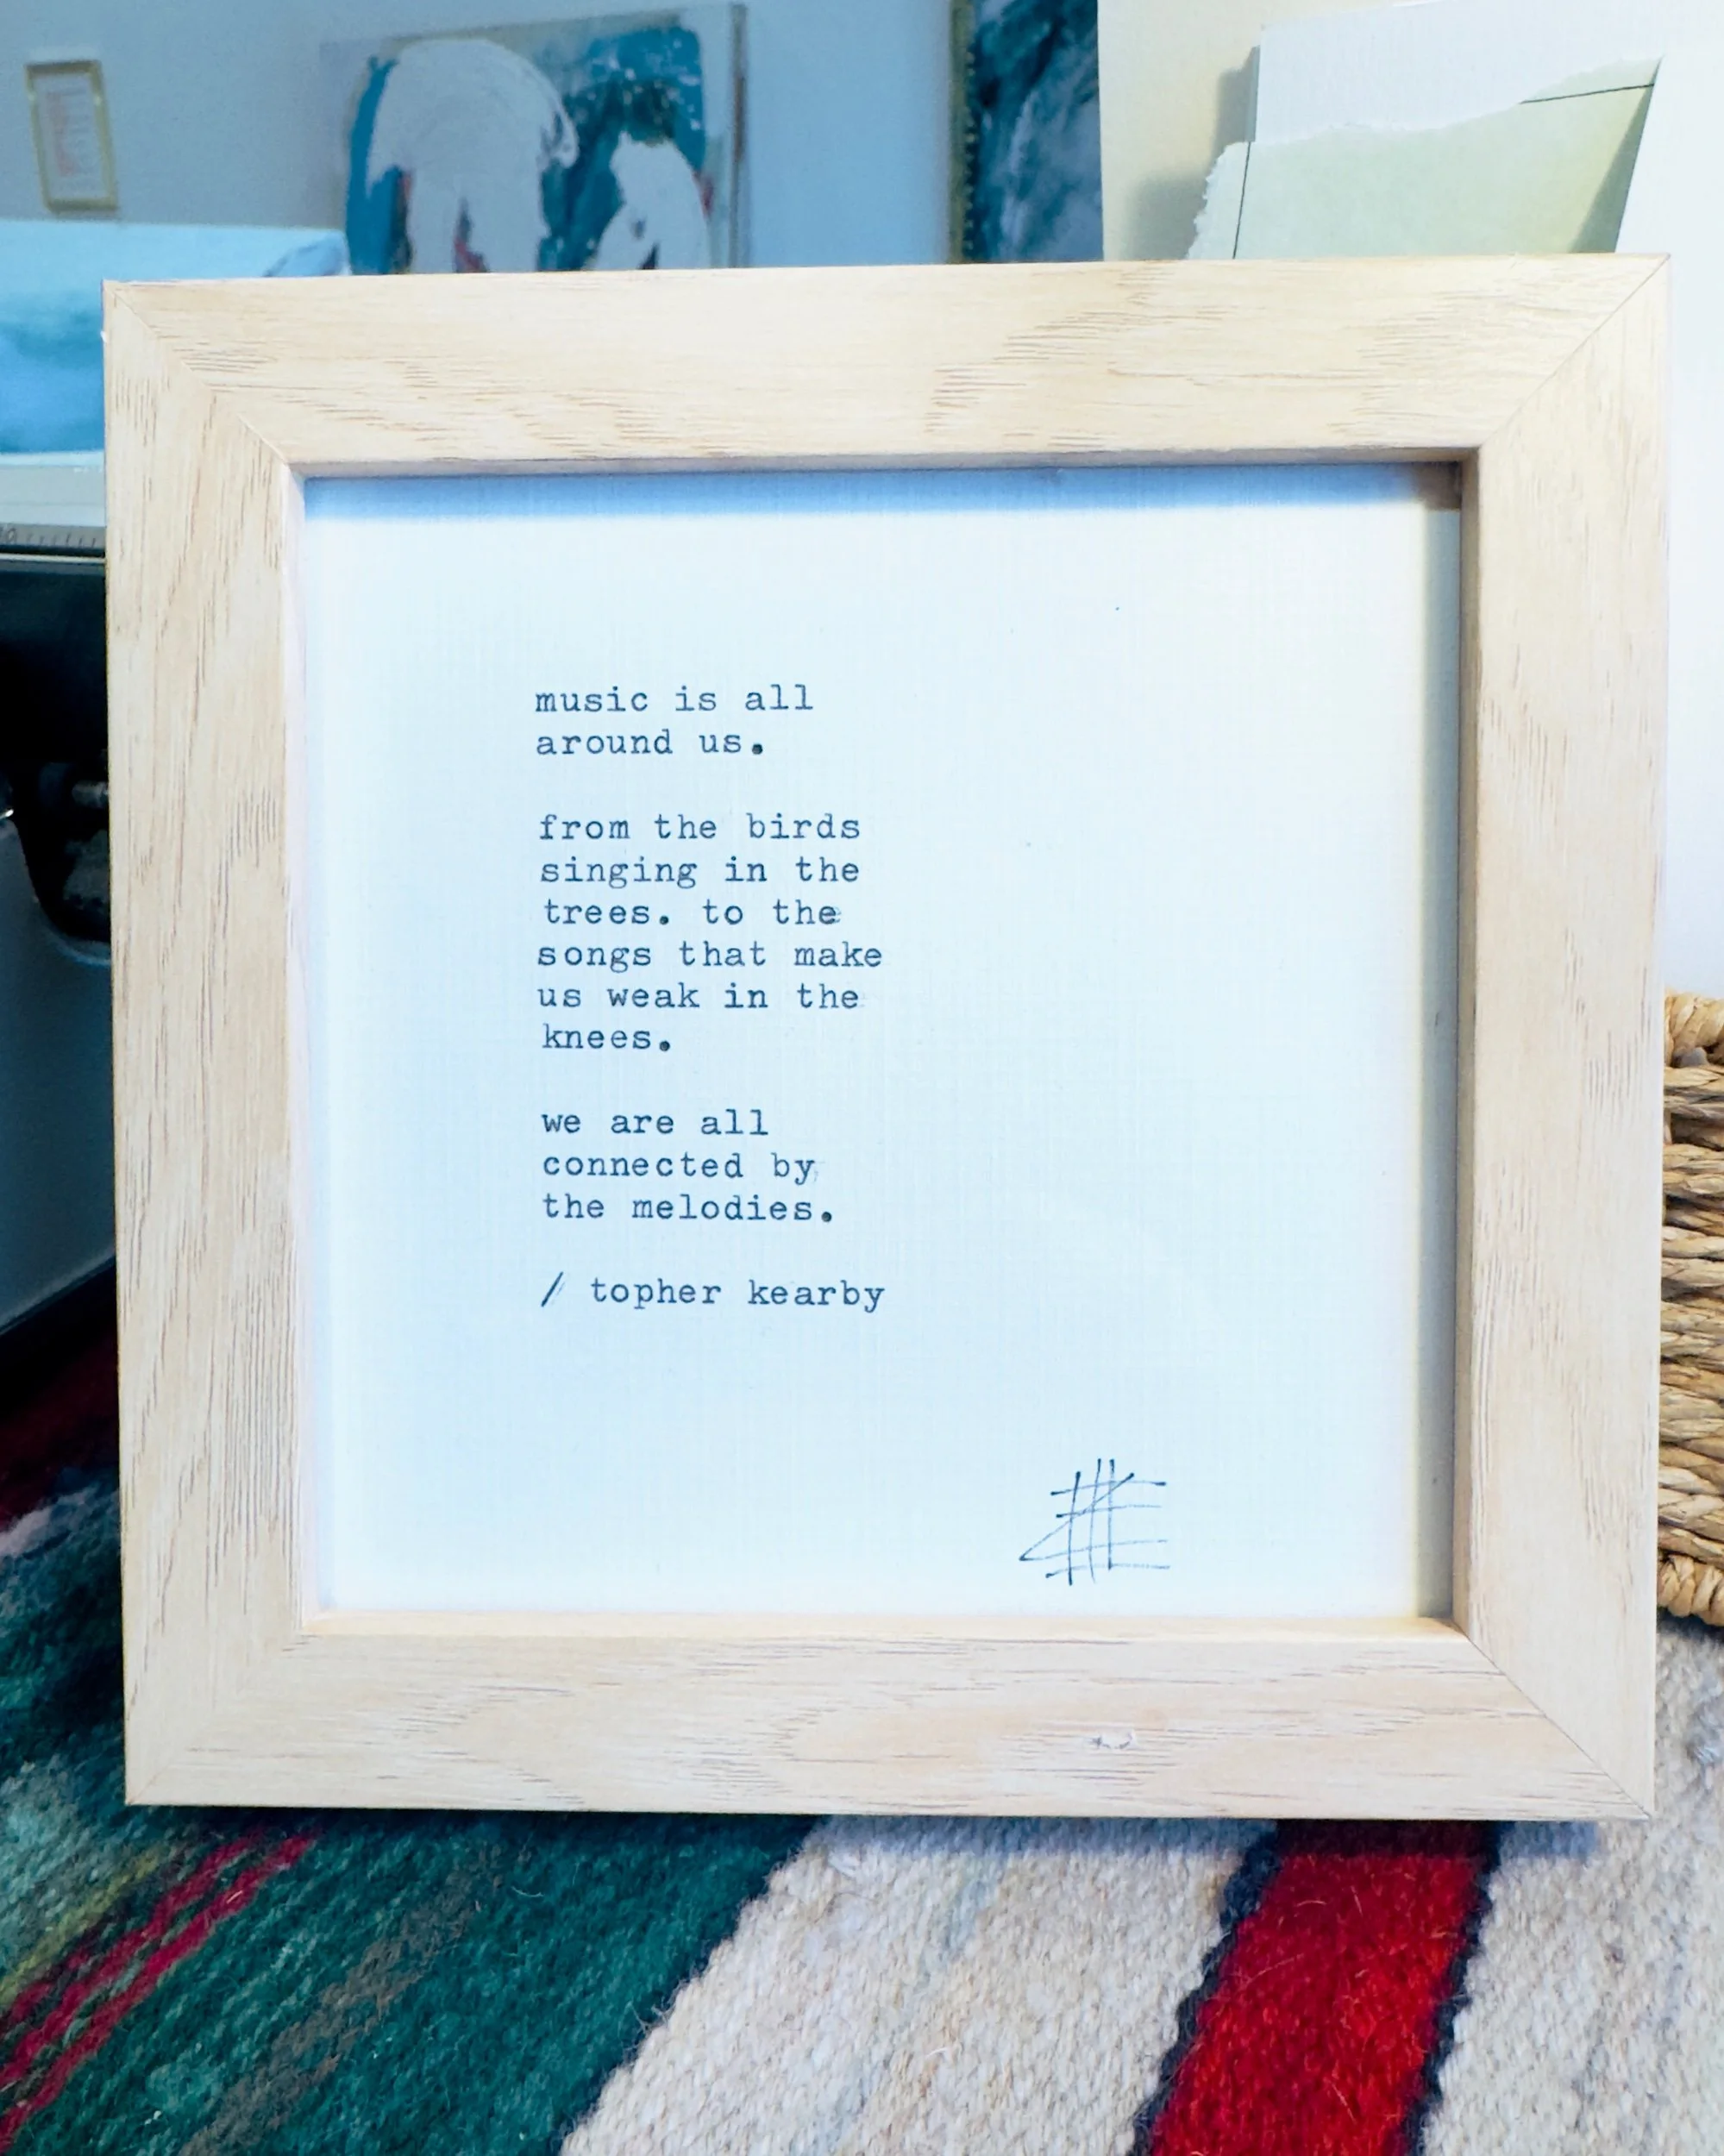 music is all
around us.
from the birds
singing in the
trees. to the
songs that make
us weak in the
knees.
we are all
connected by
the melodies.
/ topher kearby